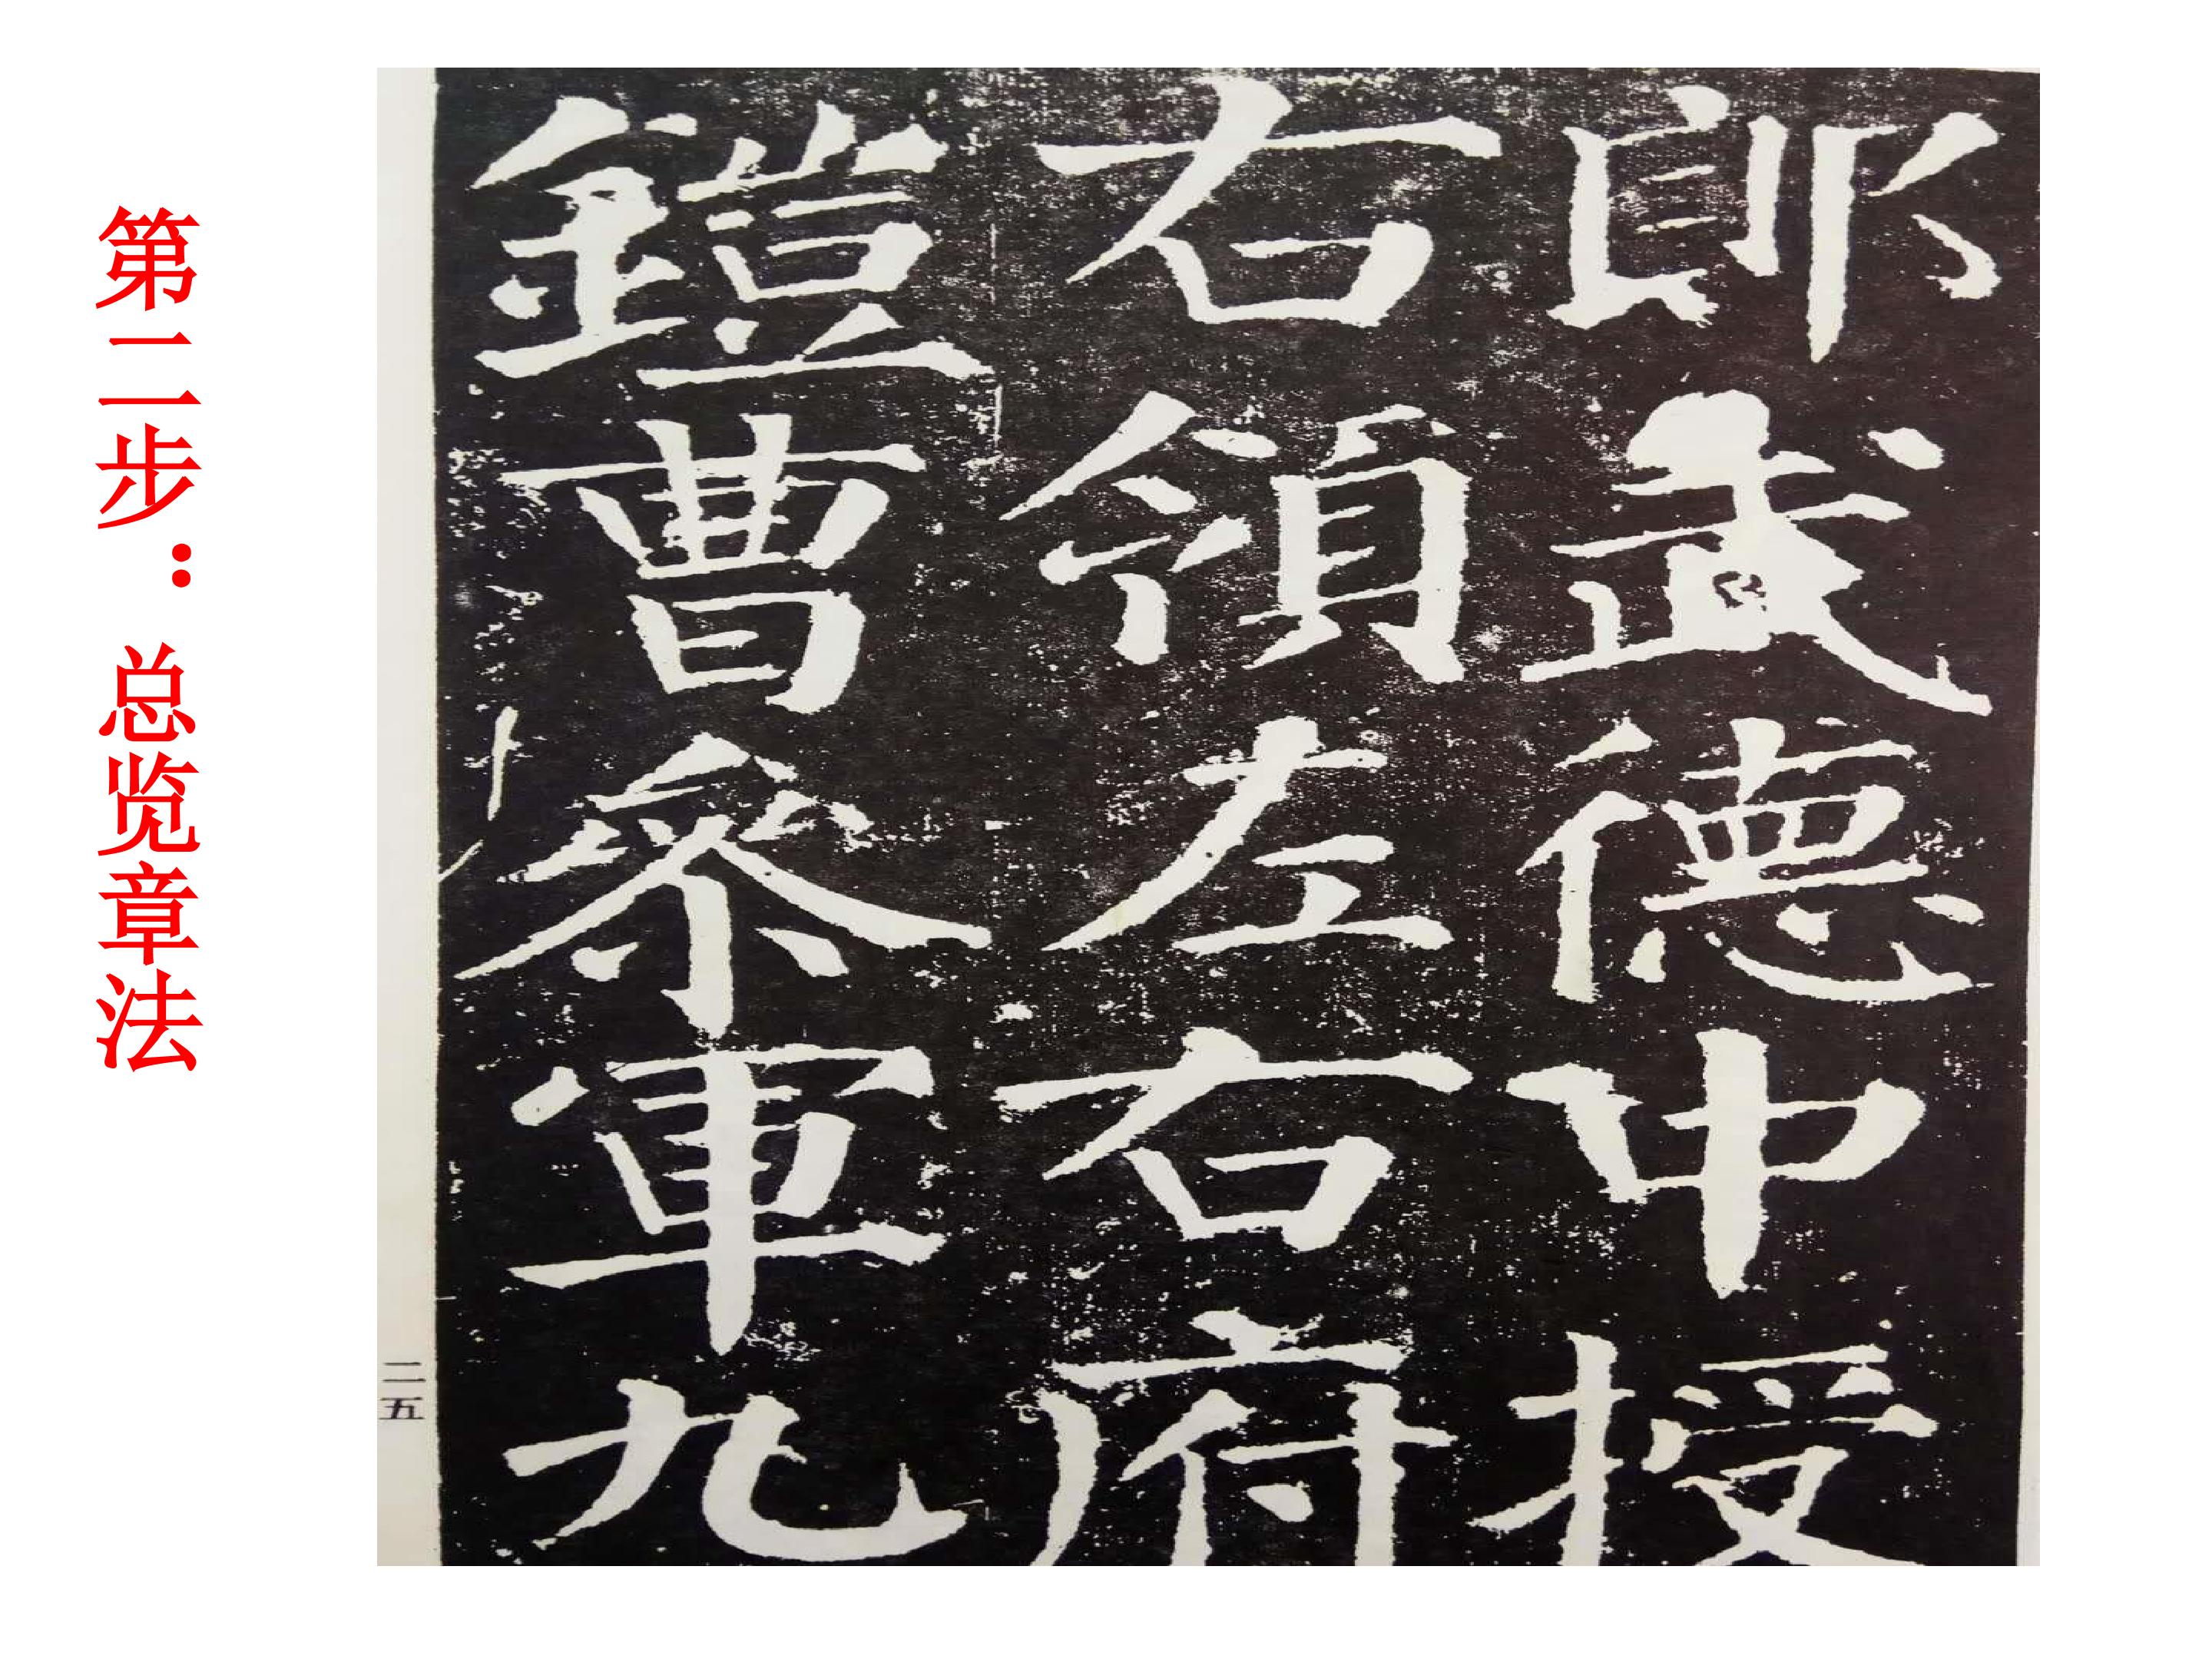 第二步：总览章法
郎武德中授
右領左右府
鎧曹參軍九
二五